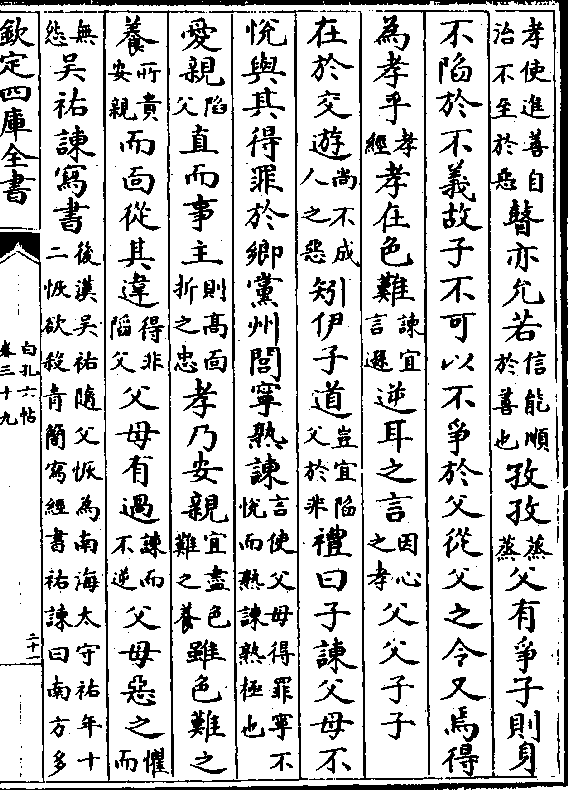 孝使進善自治不至於惡瞽亦允若信能順於善也孜孜蒸蒸父有爭子則身
不陷於不義故子不可以不爭於父從父之令又焉得
為孝乎孝經孝在色難諫宜言遜逆耳之言因心之孝父父子子
在於交遊尚不成人之惡矧伊子道豈宜陷父於非禮曰子諫父母不
悅與其得罪於鄉黨州閭寧熟諫言使父母得罪寧不悅而熟諫熟極也
愛親陷父直而事主則高面折之忠孝乃安親宜盡色難之養雖色難之
養所貴安親而面從其違得非陷父父母有過諫而不逆父母惡之懼而
無怨吳祐諫寫書後漢吳祐隨父恢為南海太守祐年十二恢欲殺青簡寫經書祐諫曰南方多
欽定四庫全書
白孔六帖
卷三十九